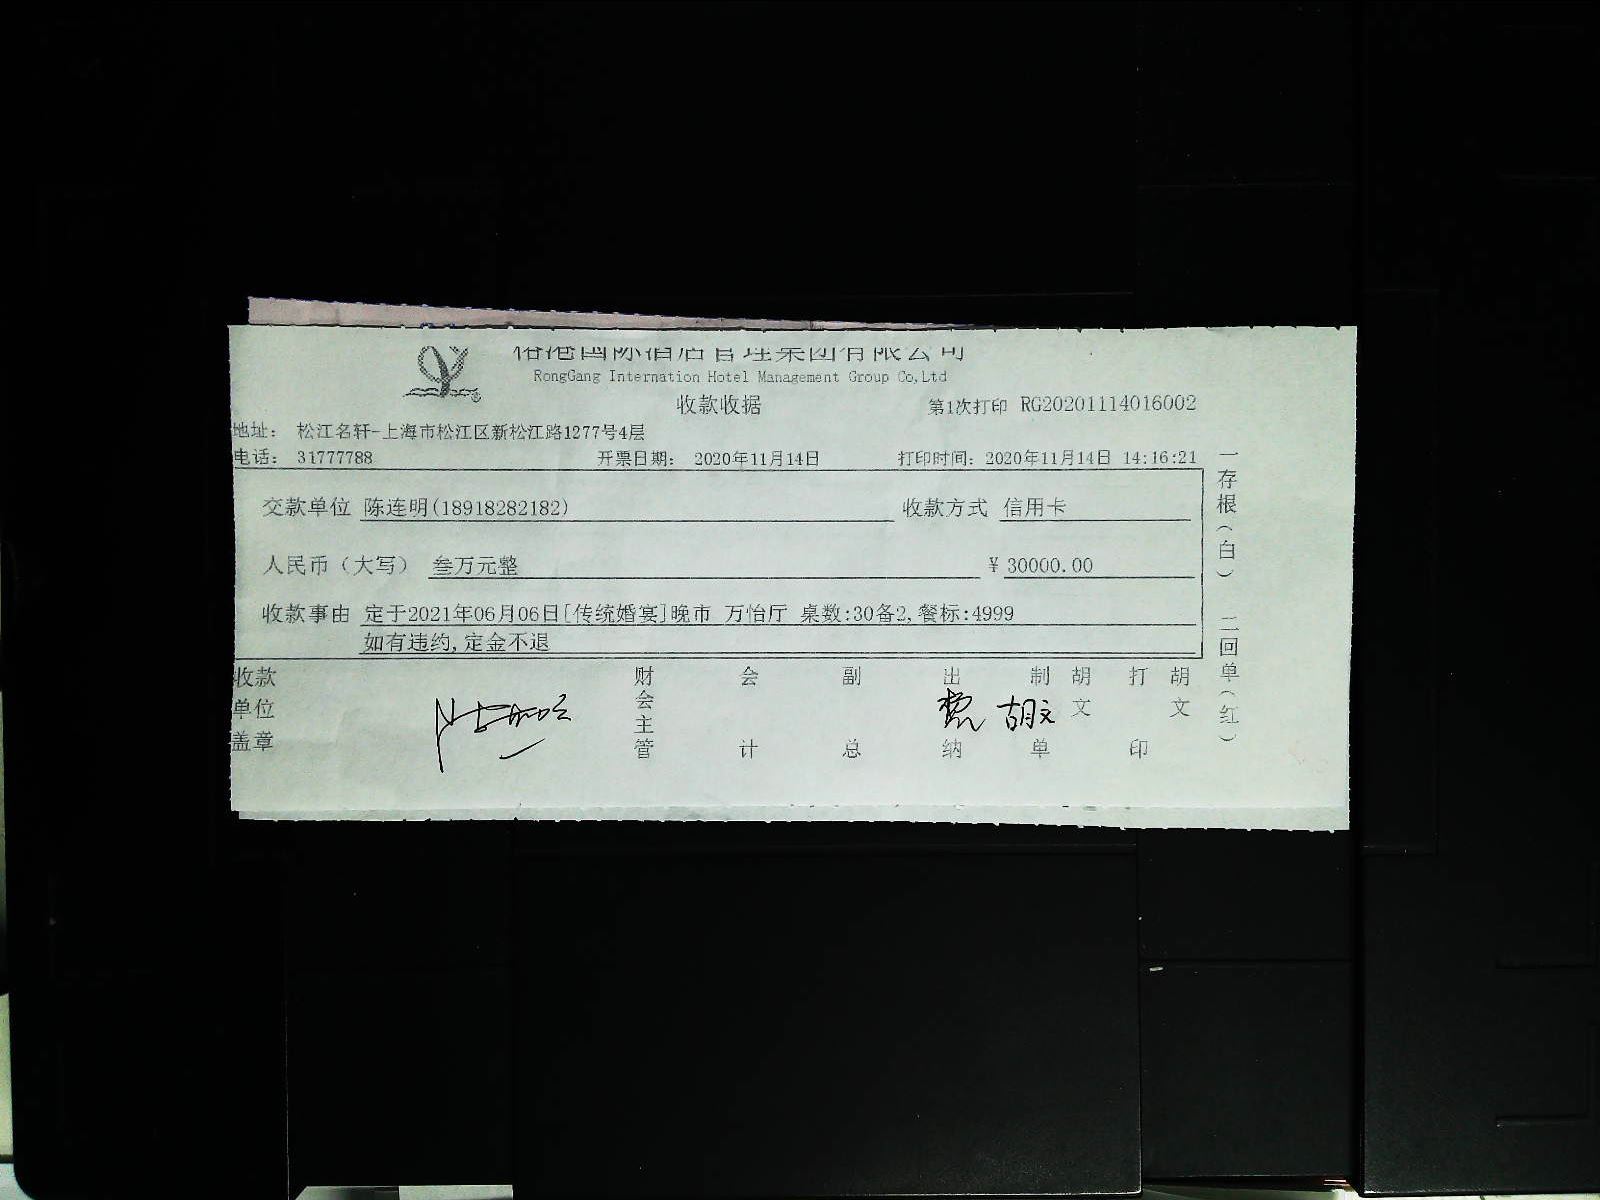 国际酒店管理集团有限公司
RongGang Internation Hotel Management Group Co,Ltd
收款收据
第1次打印 RG20201114016002
地址： 松江名轩-上海市松江区新松江路1277号4层
电话： 31777788 开票日期： 2020年11月14日 打印时间： 2020年11月14日 14:16:21
交款单位 陈连明(18918282182) 收款方式 信用卡
人民币（大写） 叁万元整 ￥30000.00
收款事由 定于2021年06月06日[传统婚宴]晚市 万怡厅 桌数:30备2,餐标:4999
如有违约,定金不退
收款单位盖章 财会主管 会计 副总 出纳 制单 胡文 打印 胡文
胡文
一存根（白） 二回单（红）